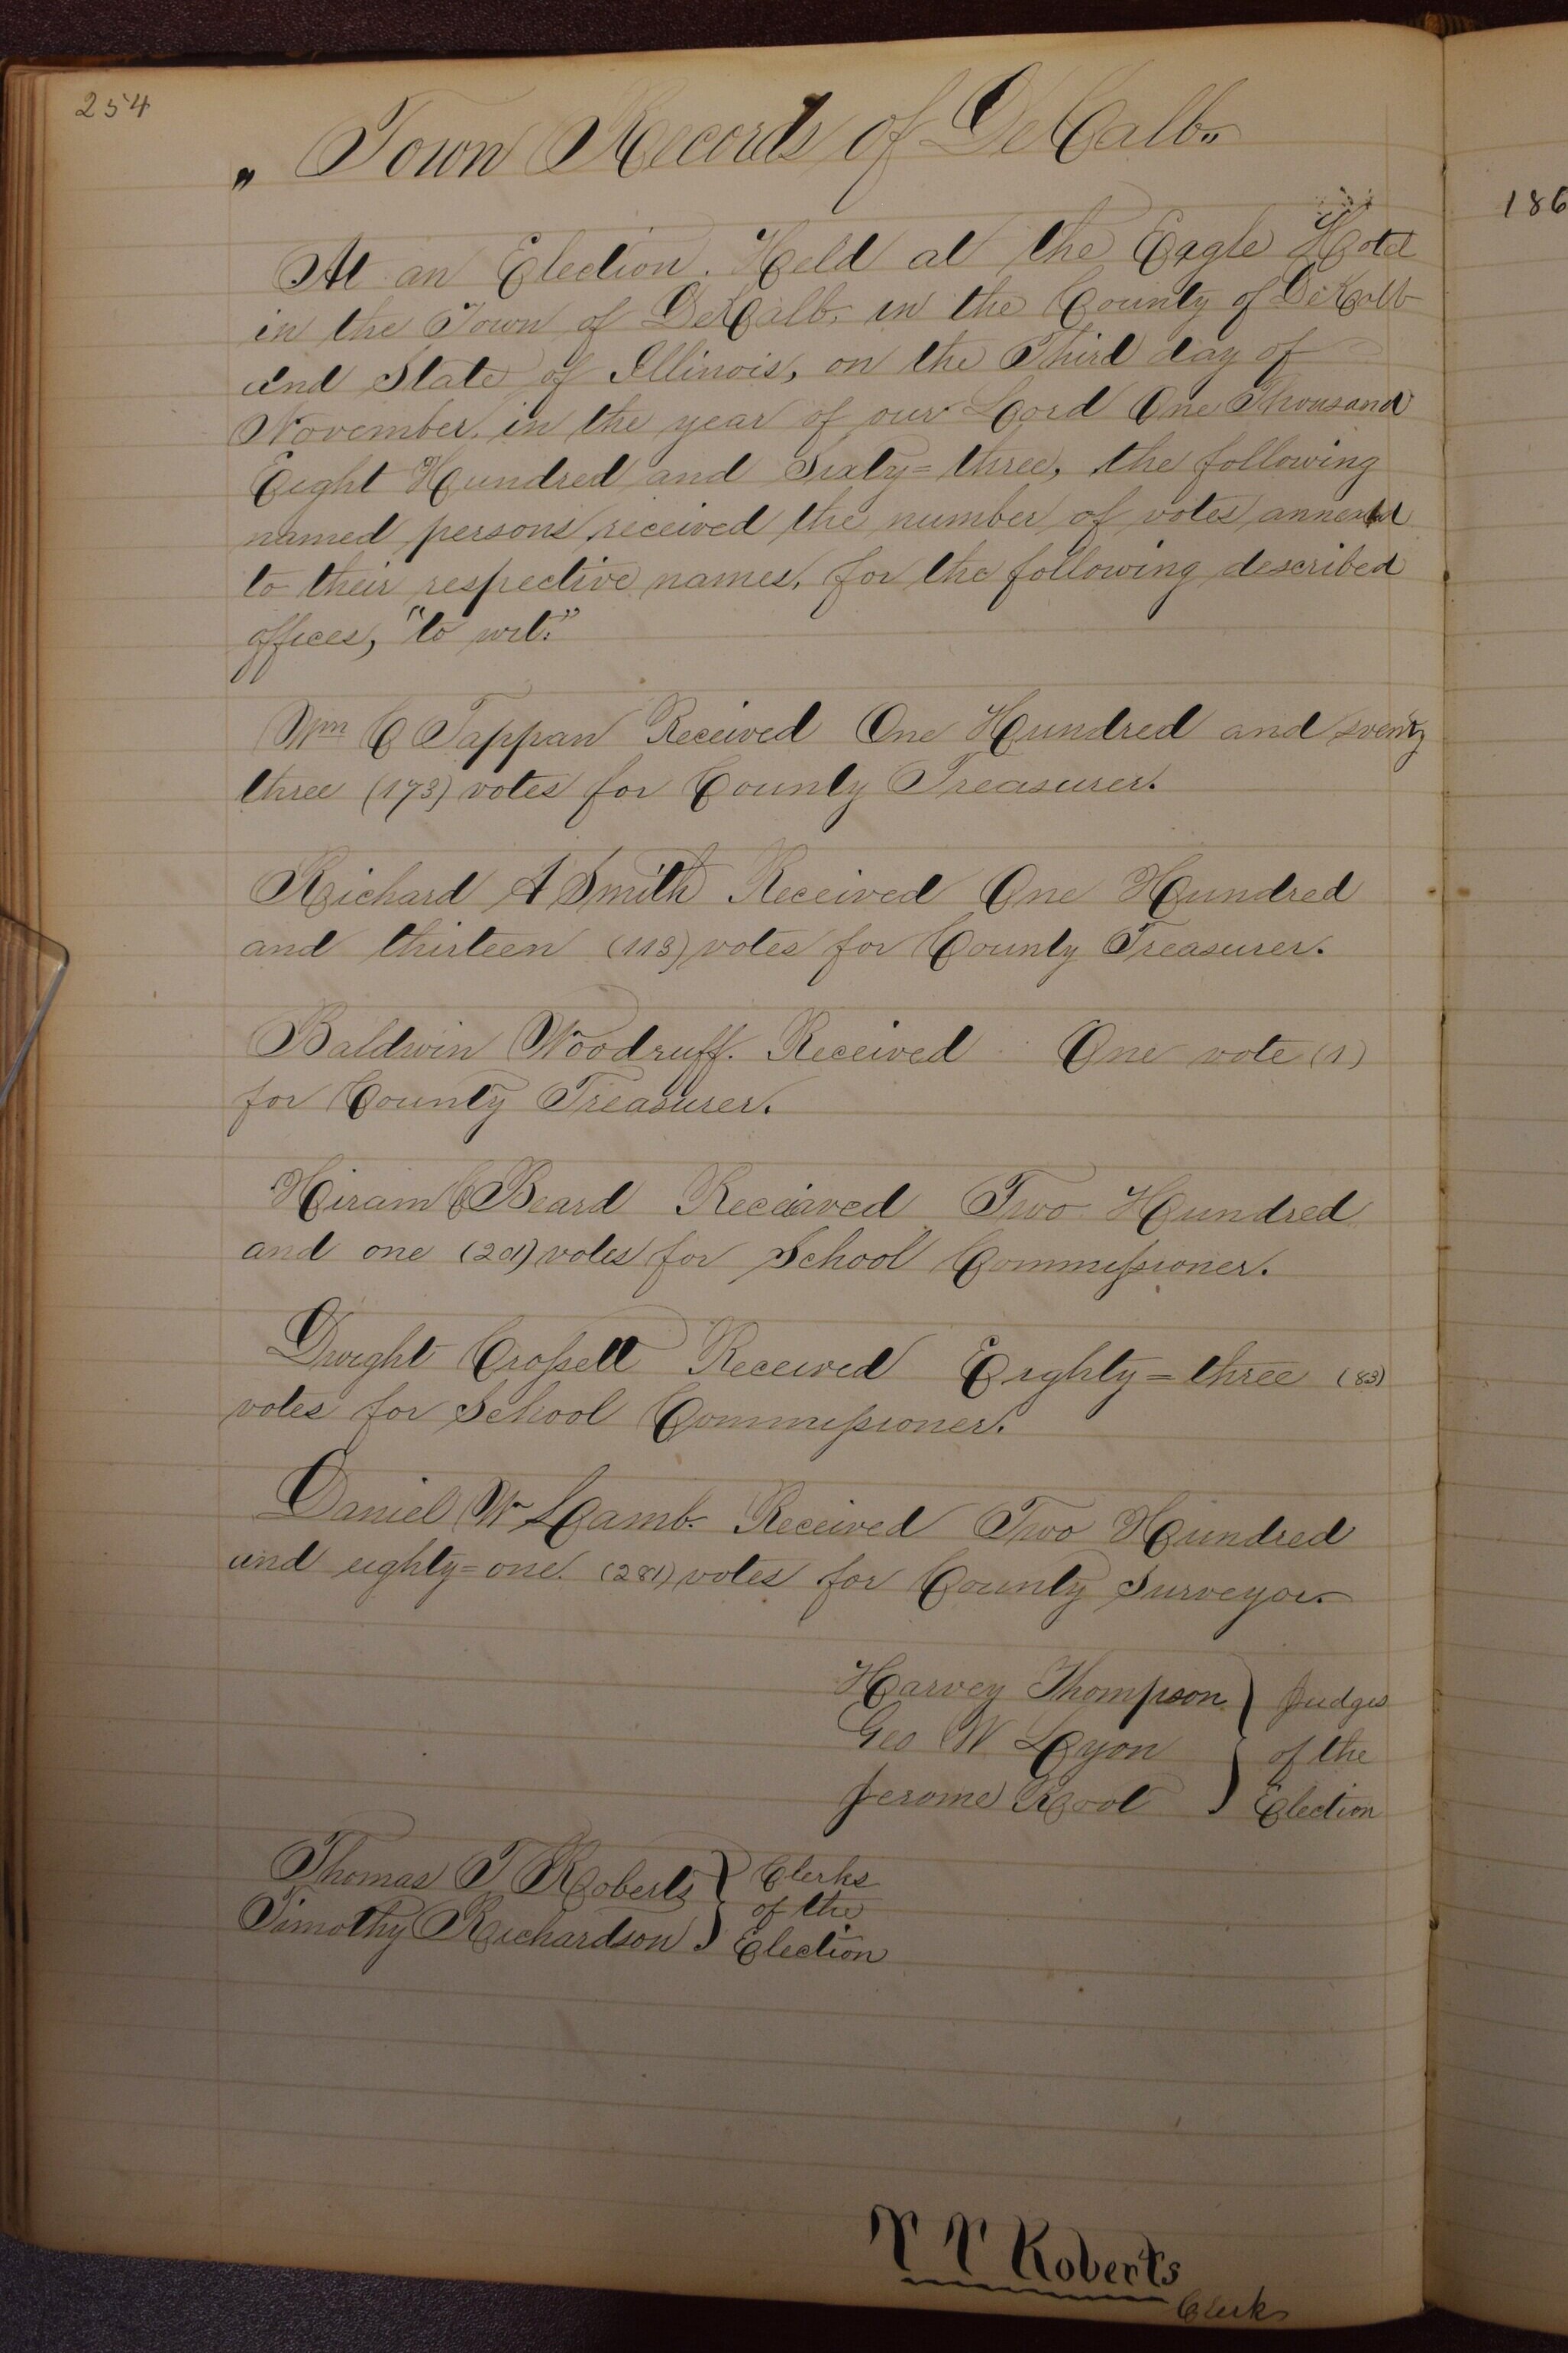 254
" Town Records of DeKalb"
186
At an Election. Held at the Eagle Hotel
in the Town of DeKalb, in the County of DeKalb
and State of Illinois, on the Third day of
November, in the year of our Lord One Thousand
Eight Hundred and Sixty=three, the following
named persons received the number of votes annexed
to their respective names, for the following described
offices, "to wit."
Wm C Tappan Received One Hundred and sventy
three (173) votes for County Treasurer.
Richard A Smith Received One Hundred
and thirteen (113) votes for County Treasurer.
Baldwin Woodruff. Received One vote (1)
for County Treasurer.
Hiram C Beard Received Two Hundred
and one (201) votes for School Commissioner.
Dwight Crossett Received Eighty=three (83)
votes for School Commissioner.
Daniel W Lamb. Received Two Hundred
and eighty=one. (281) votes for County Surveyor.
Harvey Thompson } Judges
Geo W Lyon } of the
Jerome Root } Election
Thomas T Roberts } Clerks
of the
Timothy Richardson } Election
T T Roberts
Clerk